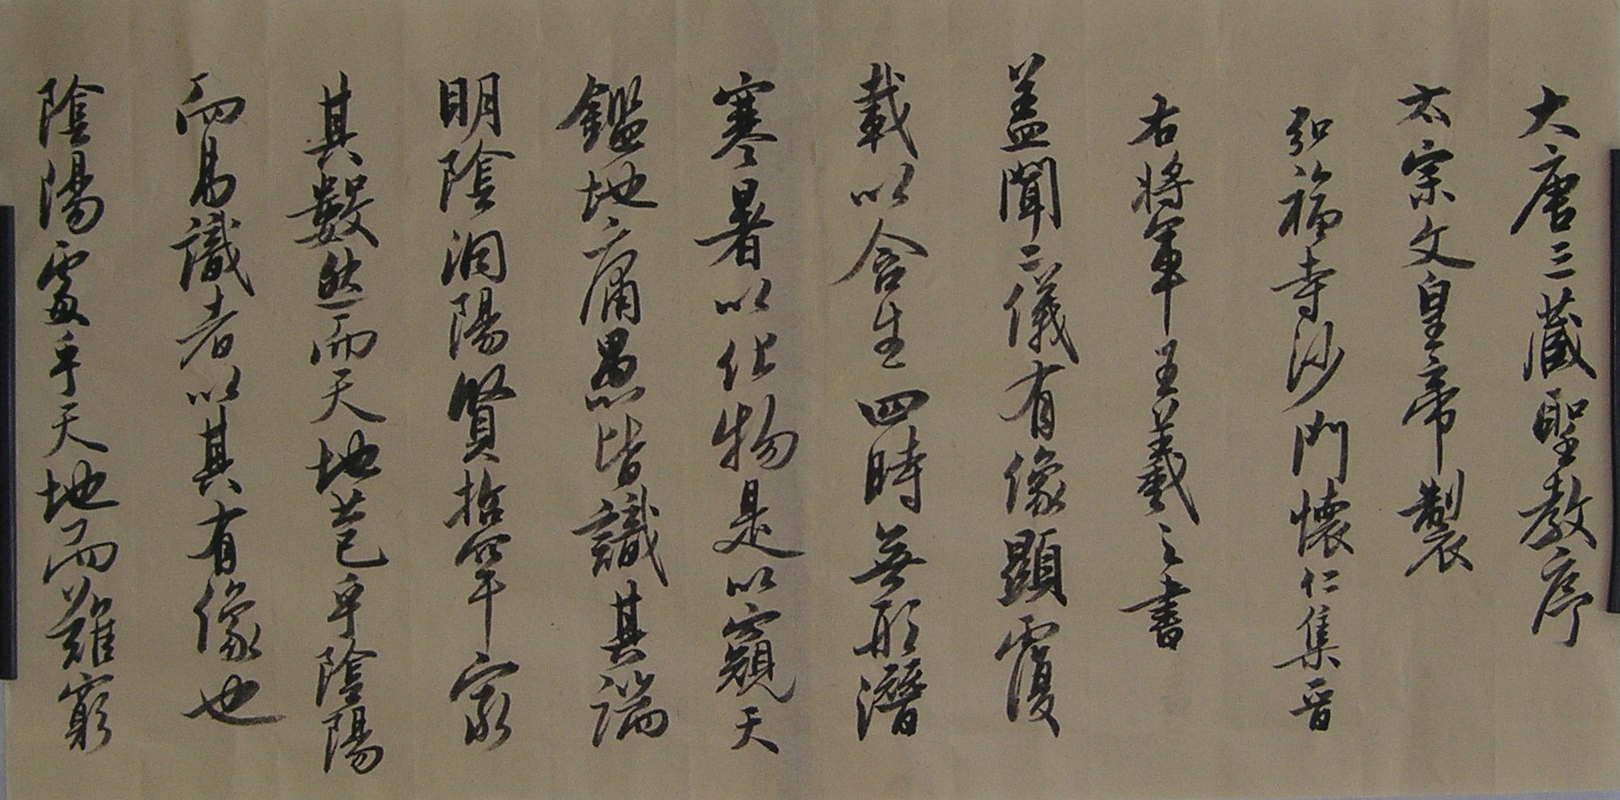 大唐三藏聖教序
太宗文皇帝製
弘福寺沙門懷仁集晉
右將軍王羲之書
蓋聞二儀有像顯覆
載以含生四時無形潛
寒暑以化物是以窺天
鑑地庸愚皆識其端
明陰洞陽賢哲罕窮
其數然而天地苞乎陰陽
而易識者以其有像也
陰陽處乎天地而難窮